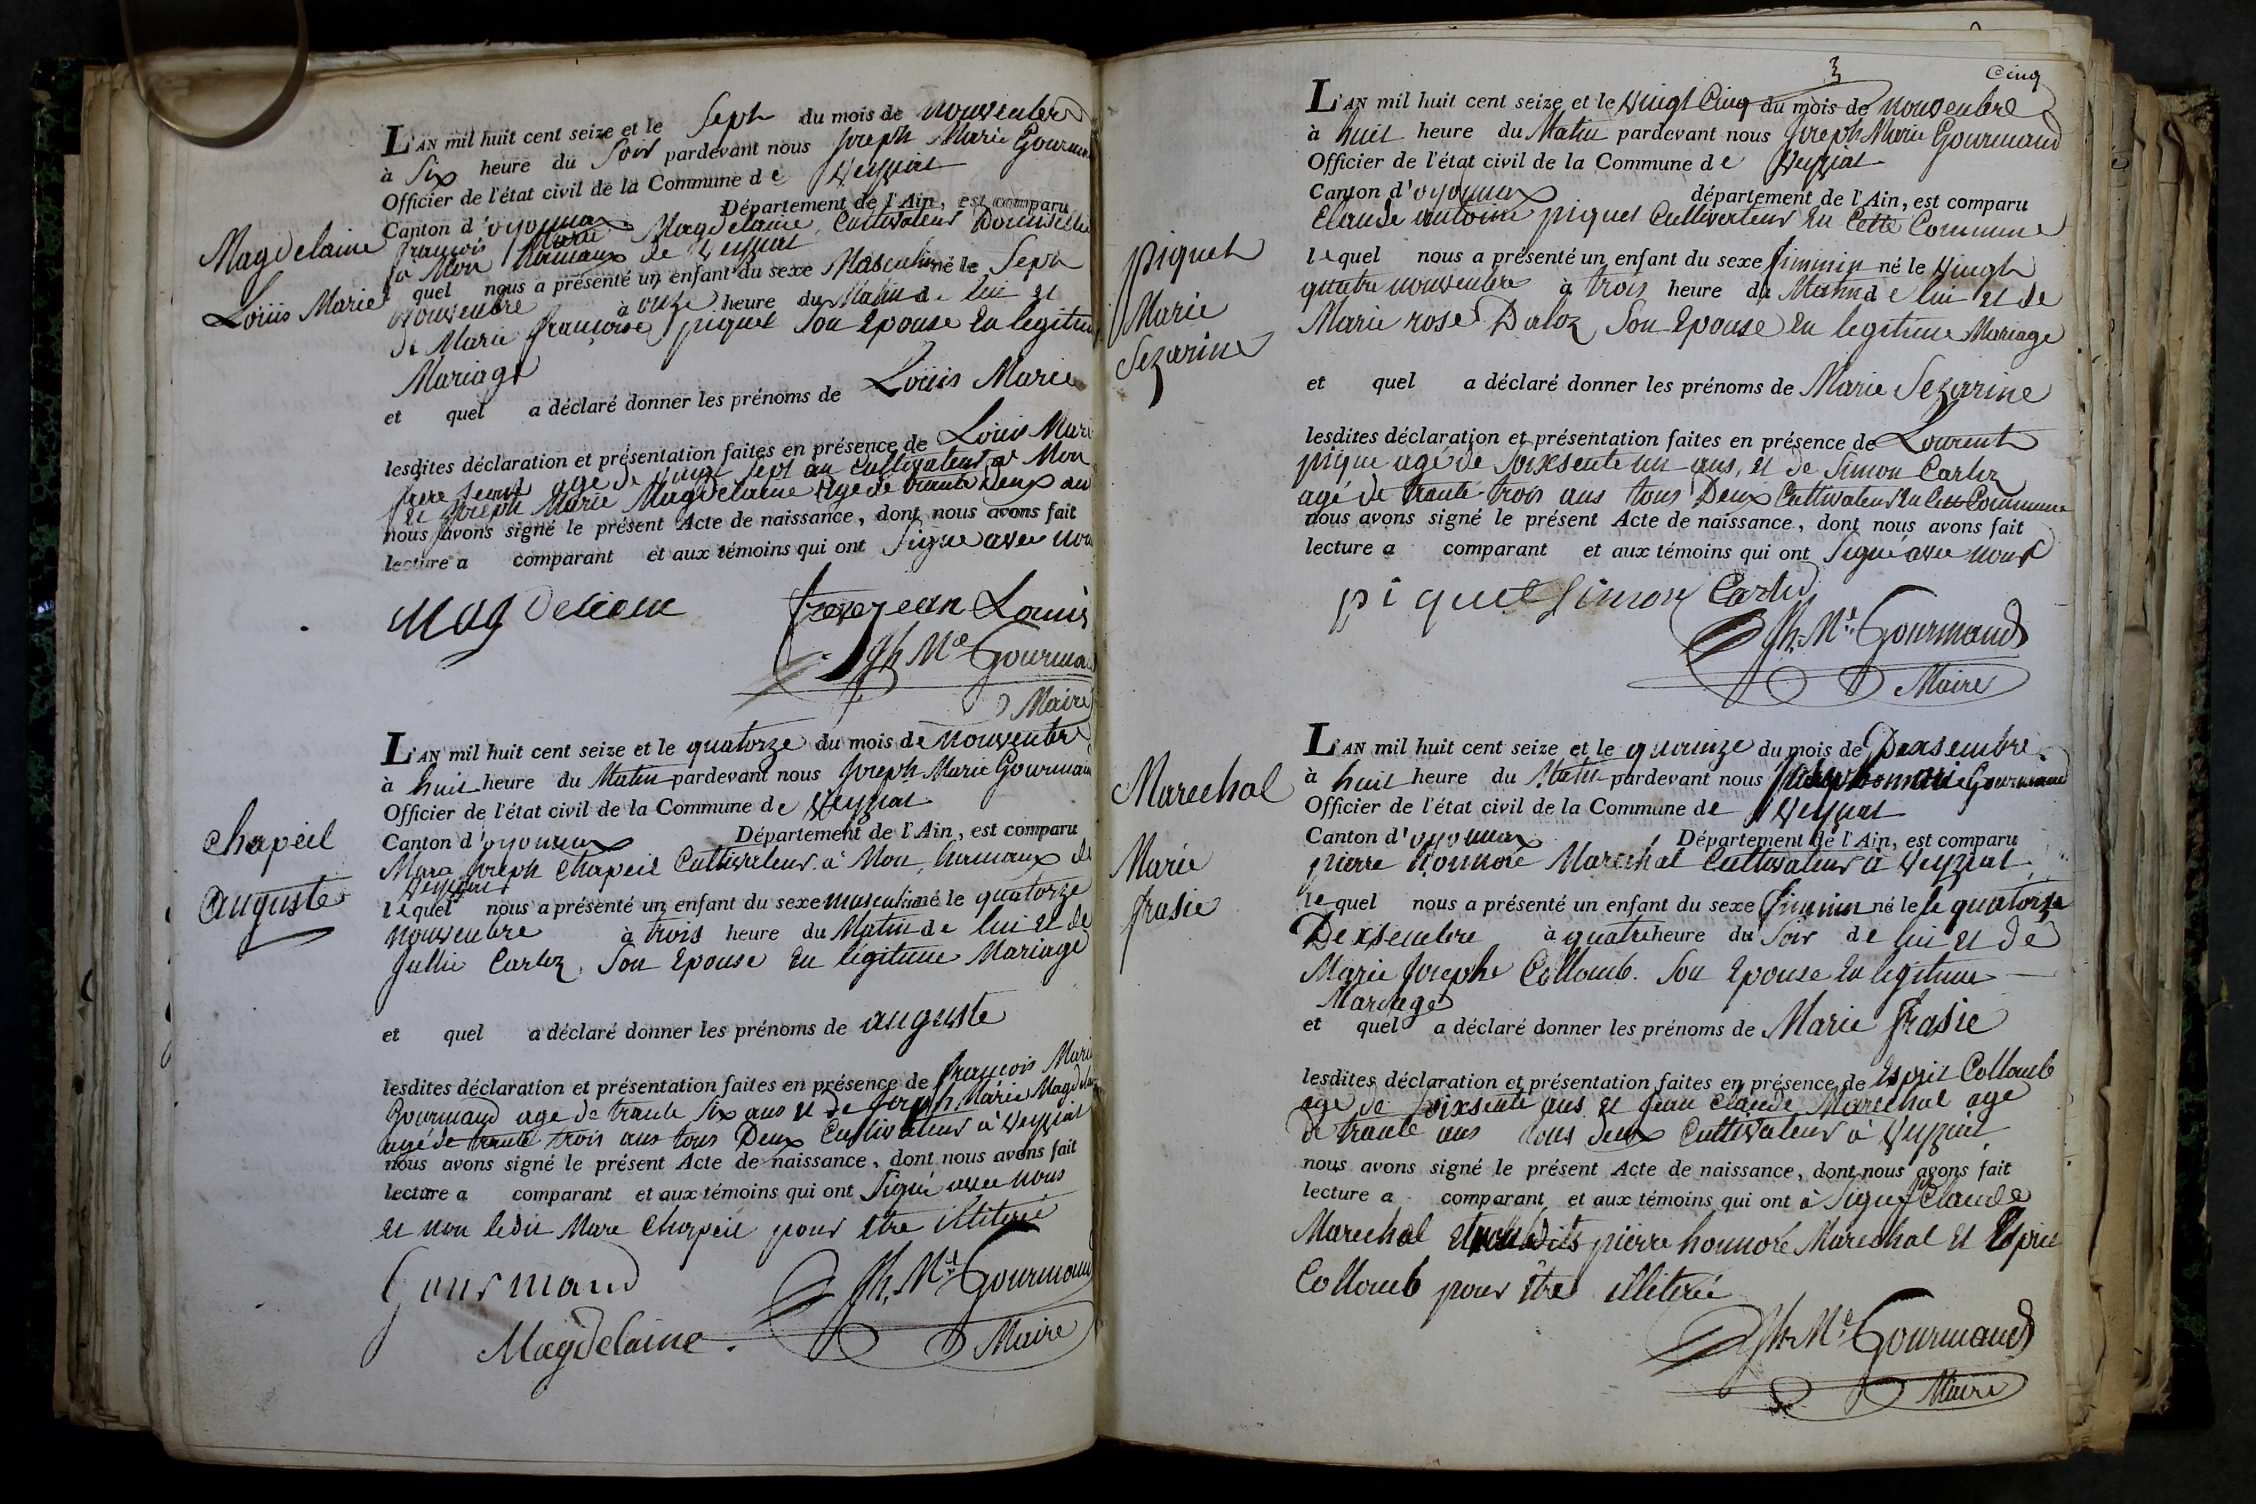 L'AN mil huit cent seize et le Sept du mois de nouvenbre
à Six heure du Soir pardevant nous Joseph Marie Gourman
Officier de l'état civil de la Commune de Veyziat
Canton d'oyonnax Département de l'Ain, est comparu
françois Marie Magdelaine, Cultivateur Domicilié
a Mon hamaux de Veyziat
Magdelaine
Loüis Marie
quel nous a présenté un enfant du sexe Masculin né le Sept
Nouvenbre à onze heure du Matin de lui et
de Marie françoise piquet Son Epouse En legitime
Mariage
et quel a déclaré donner les prénoms de Loüis Marie
lesdites déclaration et présentation faites en présence de Loüis Mari
frere Jean agé de vingt sept an Cultivateur a Mon
et Joseph Marie Magdelaine agé de trante Deux an
nous avons signé le présent Acte de naissance, dont nous avons fait
lecture a comparant et aux témoins qui ont Signé avec nous
Magdelein frere jean Louis
Jh Me Gourman
Maire
L'AN mil huit cent seize et le quatorze du mois de nouvenbre
à huit heure du Matin pardevant nous Joseph Marie Gourman
Officier de l'état civil de la Commune de Veyziat
Canton d'oyonnax Département de l'Ain, est comparu
Marc Joseph Chapeil Cultivateur à Mon, hamaux de
Veyziat
Chapeil
auguste
lequel nous a présenté un enfant du sexe masculin né le quatorze
nouvenbre à trois heure du Matin de lui et de
Jullie Carloz, Son Epouse En légitime Mariage
et quel a déclaré donner les prénoms de auguste
lesdites déclaration et présentation faites en présence de françois Mari
Gourmand agé de trante Six ans et de Joseph Marie Magdelai
agé de trante trois ans tous Deux Cultivateur à Veyziat
nous avons signé le présent Acte de naissance, dont nous avons fait
lecture a comparant et aux témoins qui ont Signé avec nous
et non ledit Marc Chapeil pour être illiterié
Gourmand Jh. Me Gourmand
Magdelaine. Maire
3 Cinq
L'AN mil huit cent seize et le vingt Cinq du mois de nouvenbre
à huit heure du Matin pardevant nous Joseph Marie Gourmand
Officier de l'état civil de la Commune de Veyziat
Canton d'oyonnax département de l'Ain, est comparu
Claude antoine piquet Cultivateur En Cette Commune
piquet
Marie
Sezarine
lequel nous a présenté un enfant du sexe finmin né le vingt
quatre nouvenbre à trois heure du Matin de lui et de
Marie rose Daloz Son Epouse En legitime Mariage
et quel a déclaré donner les prénoms de Marie Sezarine
lesdites déclaration et présentation faites en présence de Lourent
pique agé de Soixsente un ans, et de Simon Carloz
agé de trante trois ans tous Deux Cultivateur En Cette Commune
nous avons signé le présent Acte de naissance, dont nous avons fait
lecture a comparant et aux témoins qui ont Signé avec nous
piquet Simon Carloz
Jh. Me. Gourmand
Maire
L'AN mil huit cent seize et le quainze du mois de Dexsenbre
à huit heure du Matin pardevant nous Gourmand
Officier de l'état civil de la Commune de Veyziat
Canton d'oyonnax Département de l'Ain, est comparu
pierre honnoré Marechal Cultivateur à Veyziat
Marechal
Marie
frasie
lequel nous a présenté un enfant du sexe finmin né le le quatorze
Dexsenbre à quatre heure du Soir de lui et de
Marie Josephe Collomb. Son Epouse En legitime
Mariage
et quel a déclaré donner les prénoms de Marie frasie
lesdites déclaration et présentation faites en présence de Esprit Collomb
agé de Soixsente ans et Jean Claude Marechal agé
de trante ans tous deux Cultivateur à Veyziat
nous avons signé le présent Acte de naissance, dont nous avons fait
lecture a comparant et aux témoins qui ont à Signé Jn Claude
Marechal pierre honnoré Marechal et Esprit
Collomb pour être illiterié
Jh. Me. Gourmand
Maire